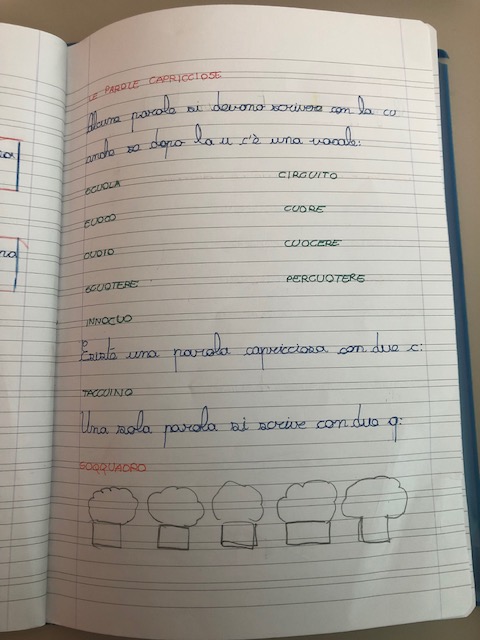 LE PAROLE CAPRICCIOSE
Alcune parole si devono scrivere con la cu
anche se dopo la u c'è una vocale:
SCUOLA CIRCUITO
CUOCO CUORE
CUOIO CUOCERE
SCUOTERE PERCUOTERE
INNOCUO
Esiste una parola capricciosa con due c:
TACCUINO
Una sola parola si scrive con due q:
SOQQUADRO